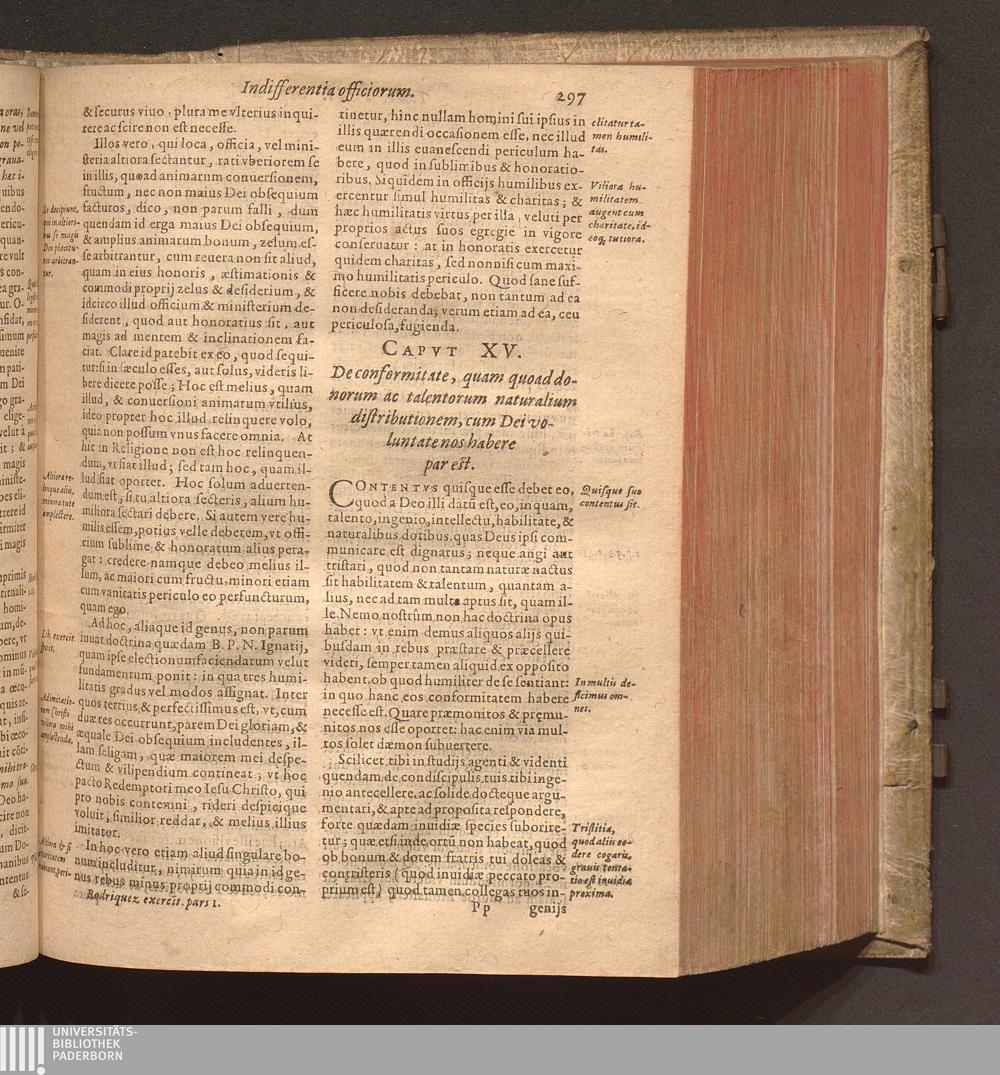 Indifferentia officiorum.
297
& ſecurus viuo, plura me vlterius inqui-
rere ac ſcire non eſt neceſſe.
Illos vero, qui loca, officia, vel mini-
ſteria altiora ſectantur, rati vberiorem ſe
in illis, quoad animarum conuerſionem,
fructum, nec non maius Dei obſequium
facturos, dico, non parum falli, dum
quendam id erga maius Dei obſequium,
& amplius animarum bonum, zelum eſ-
ſe arbitrantur, cum reuera non ſit aliud,
quam in eius honoris, æſtimationis &
commodi proprij zelus & deſiderium, &
idcirco illud officium & miniſterium de-
ſiderent, quod aut honoratius ſit, aut
magis ad mentem & inclinationem fa-
ciat. Clare id patebit ex eo, quod ſequi-
tur: ſi in ſæculo eſſes, aut ſolus, videris li-
bere dicere poſſe; Hoc eſt melius, quam
illud, & conuerſioni animarum vtilius,
ideo propter hoc illud relinquere volo,
quia non poſſum vnus facere omnia. At
hic in Religione non eſt hoc relinquen-
dum, vt fiat illud; ſed tam hoc, quam il-
lud fiat oportet. Hoc ſolum aduerten-
dum eſt, ſi tu altiora ſecteris, alium hu-
miliora ſectari debere. Si autem vere hu-
milis eſſem, potius velle deberem, vt offi-
cium ſublime & honoratum alius pera-
gat: credere namque debeo melius il-
lum, ac maiori cum fructu, minori etiam
cum vanitatis periculo eo perfuncturum,
quam ego.
Ad hoc, aliaque id genus, non parum
iuuat doctrina quædam B. P. N. Ignatij,
quam ipſe electionum faciendarum velut
fundamentum ponit: in qua tres humi-
litatis gradus vel modos aſſignat. Inter
quos tertius, & perfectiſſimus eſt, vt, cum
duæ res occurrunt, parem Dei gloriam, &
æquale Dei obſequium includentes, il-
lam ſeligam, quæ maiorem mei deſpe-
ctum & vilipendium contineat; vt hoc
pacto Redemptori meo Ieſu Chriſto, qui
pro nobis contemni, rideri deſpicique
voluit, ſimilior reddar, & melius illius
imitator.
In hoc vero etiam aliud ſingulare bo-
num includitur, nimirum quia in id ge-
nus rebus minus proprij commodi con-
Rodriquez exercit. pars 1.
Se decipiunt,
qui in altiori-
bus ſe magis
Deo placitu-
ros arbitran-
tur.
Altiora re-
linque aliis,
minora tute
amplectere.
Lib. exercit.
ſpirit.
Ad imitatio-
nem Chriſti
viliora mihi
amplectenda.
tinetur, hinc nullam homini ſui ipſius in
illis quærendi occaſionem eſſe, nec illud
eum in illis euaneſcendi periculum ha-
bere, quod in ſublimibus & honoratio-
ribus. Siquidem in officijs humilibus ex-
ercentur ſimul humilitas & charitas; &
hæc humilitatis virtus per illa, veluti per
proprios actus ſuos egregie in vigore
conſeruatur: at in honoratis exercetur
quidem charitas, ſed non niſi cum maxi-
mo humilitatis periculo. Quod ſane ſuf-
ficere nobis debebat, non tantum ad ea
non deſideranda, verum etiam ad ea, ceu
periculoſa, fugienda.
clitatur ta-
men humili-
tas.
Viliora hu-
militatem
augent cum
charitate, id-
eoq, tutiora.
CAPVT XV.
De conformitate, quam quoad do-
norum ac talentorum naturalium
diſtributionem, cum Dei vo-
luntate nos habere
par eſt.
CONTENTVS quiſque eſſe debet eo,
quod a Deo illi datũ eſt, eo, inquam,
talento, ingenio, intellectu, habilitate, &
naturalibus dotibus, quas Deus ipſi com-
municare eſt dignatus; neque angi aut
triſtari, quod non tantam naturæ nactus
ſit habilitatem & talentum, quantam a-
lius, nec ad tam multa aptus ſit, quam il-
le. Nemo noſtrûm non hac doctrina opus
habet: vt enim demus aliquos alijs qui-
buſdam in rebus præſtare & præcellere
videri, ſemper tamen aliquid ex oppoſito
habent, ob quod humiliter de ſe ſentiant:
in quo hanc eos conformitatem habere
neceſſe eſt. Quare præmonitos & præmu-
nitos nos eſſe oportet: hac enim via mul-
tos ſolet dæmon ſubuertere.
Scilicet tibi in ſtudijs agenti & videnti
quendam de condiſcipulis tuis tibi inge-
nio antecellere, ac ſolide docteque argu-
mentari, & apte ad propoſita reſpondere,
forte quædam inuidiæ ſpecies ſuborire-
tur; quæ etſi inde ortũ non habeat, quod
ob bonum & dotem fratris tui doleas &
contriſteris (quod inuidiæ peccato pro-
prium eſt) quod tamen collegas tuos in-
Pp
genijs
Quiſque ſuo
contentus ſit.
In multis de-
ficimus om-
nes.
Triſtitia,
quod aliis ce-
dere cogaris,
grauis tenta-
tio eſt inuidiæ
proxima.
UNIVERSITÄTS-
BIBLIOTHEK
PADERBORN